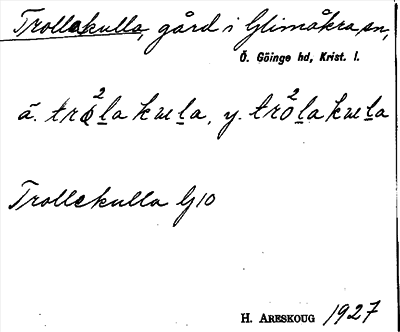 Trollakulla, gård i Glimåkra sn,
Ö. Göinge hd, Krist. l.
ä. trò²l̲a kul̲a, y. trò²l̲a kul̲a
Trollekulla GJ10
H. ARESKOUG 1927